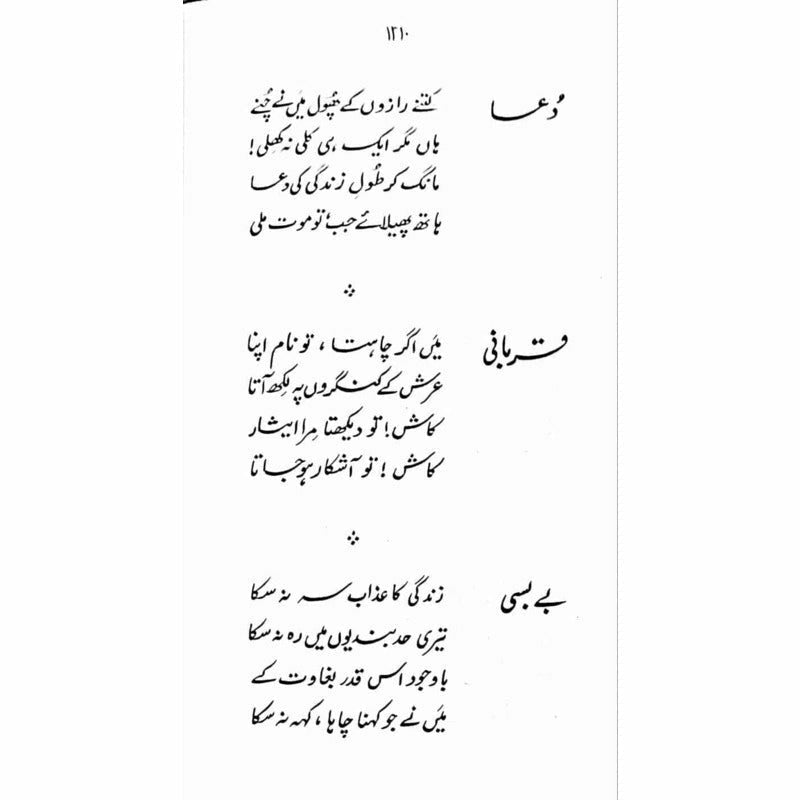 ۱۲۱۰
دُعا
کتنے رازوں کے پھُول میں نے چُنے
ہاں مگر ایک ہی کلی نہ کھِلی!
مانگ کر طُولِ زندگی کی دعا
ہاتھ پھیلائے جب تو موت ملی
قربانی
میں اگر چاہتا، تو نام اپنا
عرش کے کنگروں پہ لکھ آتا
کاش! تو دیکھتا مرا ایثار
کاش! تو آشکار ہو جاتا
بے بسی
زندگی کا عذاب سہہ نہ سکا
تیری حد بندیوں میں رہ نہ سکا
باوجود اس قدر بغاوت کے
میں نے جو کہنا چاہا، کہہ نہ سکا